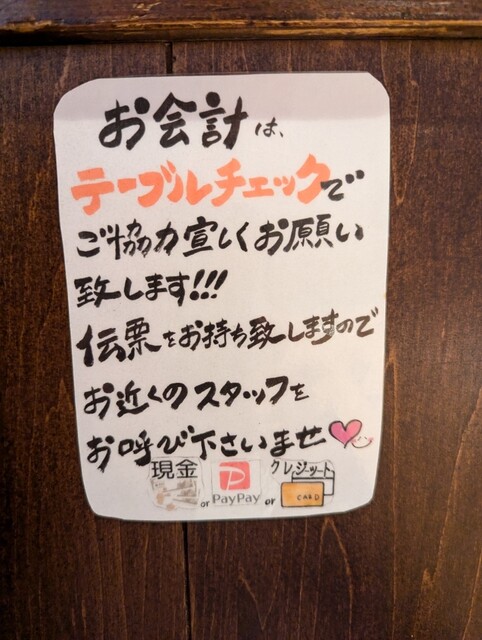 お会計は、
テーブルチェックで
ご協力宜しくお願い
致します!!!
伝票をお持ち致しますので
お近くのスタッフを
お呼び下さいませ
現金 or PayPay or クレジット
CARD